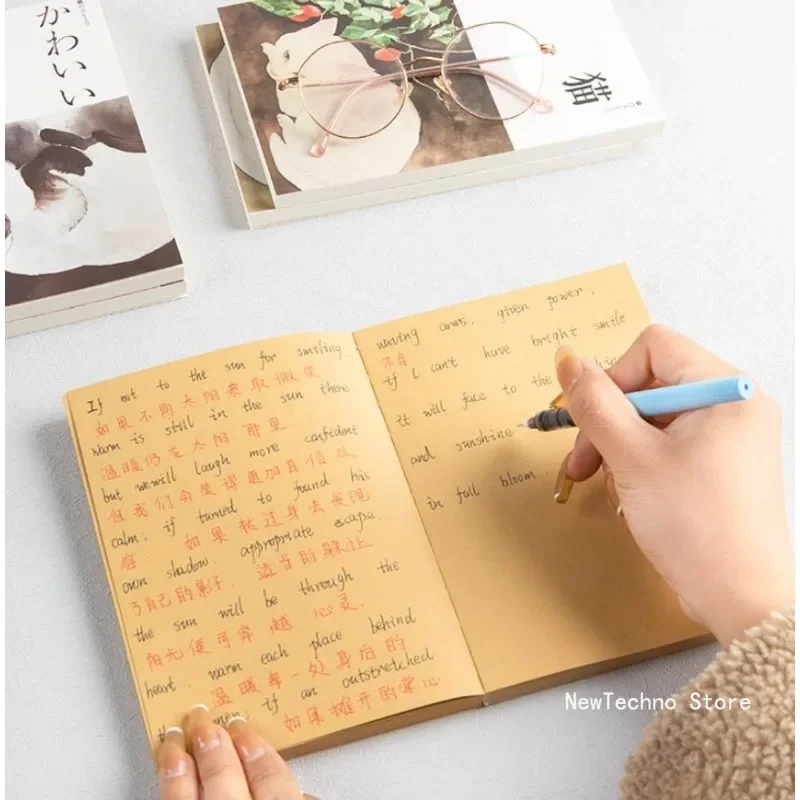 かわいい
猫
If not to the sun for smiling.
如果不向太阳索取微笑
warm is still in the sun there.
温暖仍在太阳 那里
but wewill laugh more confident
但我们会笑得更加自信从
calm; if turned to found his
容 如果转过身去发现
own shadow. appropriate escape.
了自己的影子. 适当的躲让
the sun will be through the
阳光便可穿 越 心灵.
heart. warm each place behind
温暖每一处身后的
men; if an outstretched
如果摊开的掌心
waving arms. given power;
不肯
if I can't have bright smile
it will face to the
and sunshine
in full bloom.
NewTechno Store